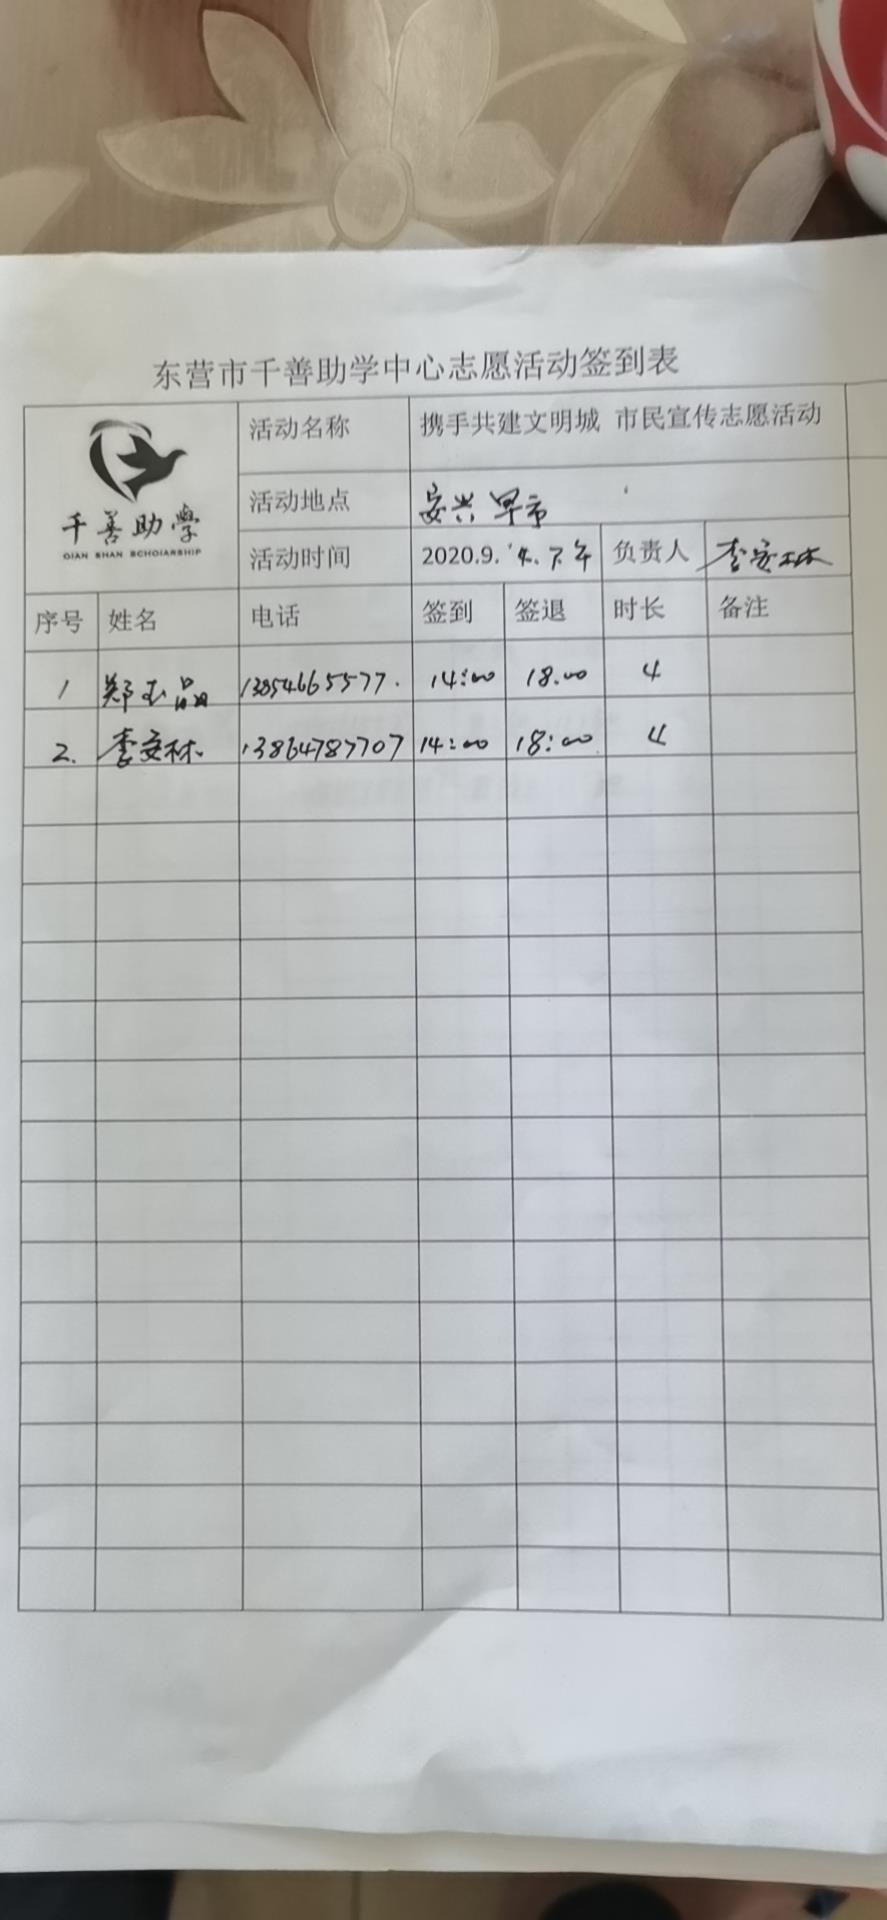 东营市千善助学中心志愿活动签到表
千善助學
QIAN SHAN SCHOLARSHIP
活动名称 携手共建文明城 市民宣传志愿活动
活动地点 安兴早市
活动时间 2020.9. 下午 负责人 李安林
序号 姓名 电话 签到 签退 时长 备注
1 郑玉晶 13854665577. 14:00 18.00 4
2. 李安林 13864787707 14:00 18:00 4